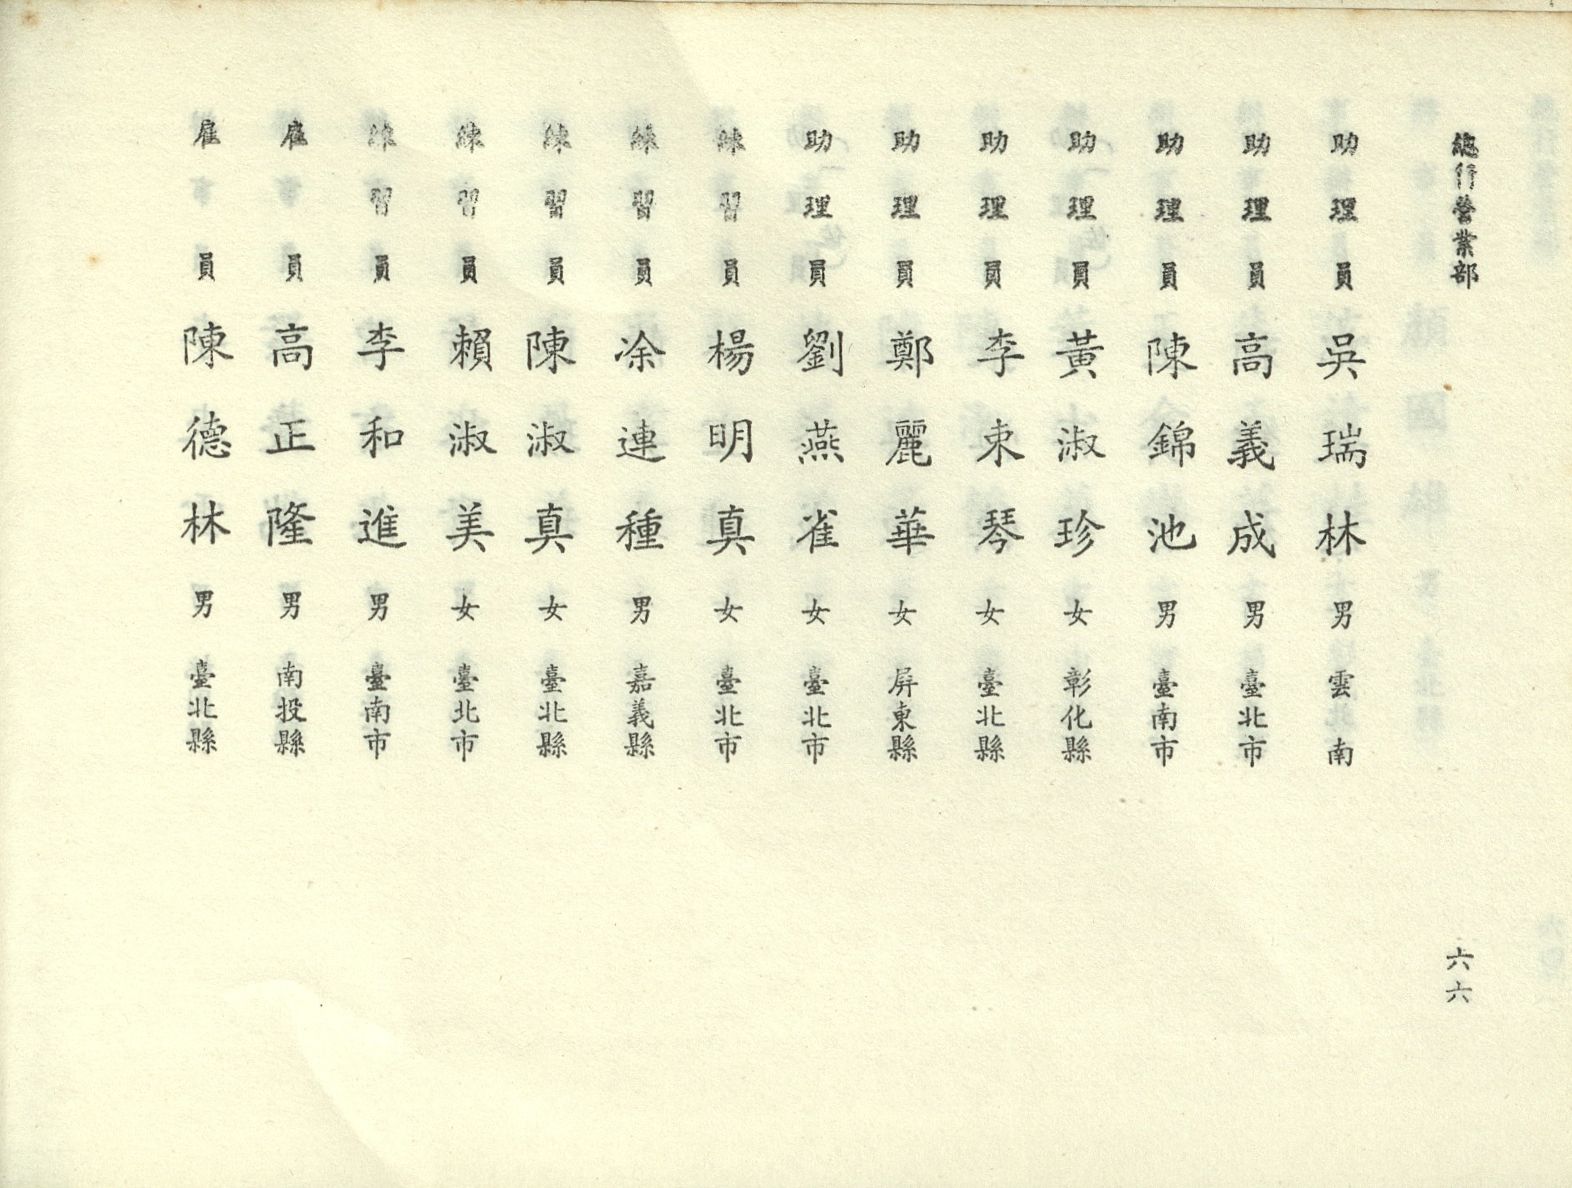 總行營業部
助理員 吳瑞林 男 雲南
助理員 高義成 男 臺北市
助理員 陳錦池 男 臺南市
助理員 黃淑珍 女 彰化縣
助理員 李束琴 女 臺北縣
助理員 鄭麗華 女 屏東縣
助理員 劉燕雀 女 臺北市
練習員 楊明真 女 臺北市
練習員 凃連種 男 嘉義縣
練習員 陳淑真 女 臺北縣
練習員 賴淑美 女 臺北市
練習員 李和進 男 臺南市
雇員 高正隆 男 南投縣
雇員 陳德林 男 臺北縣
六六